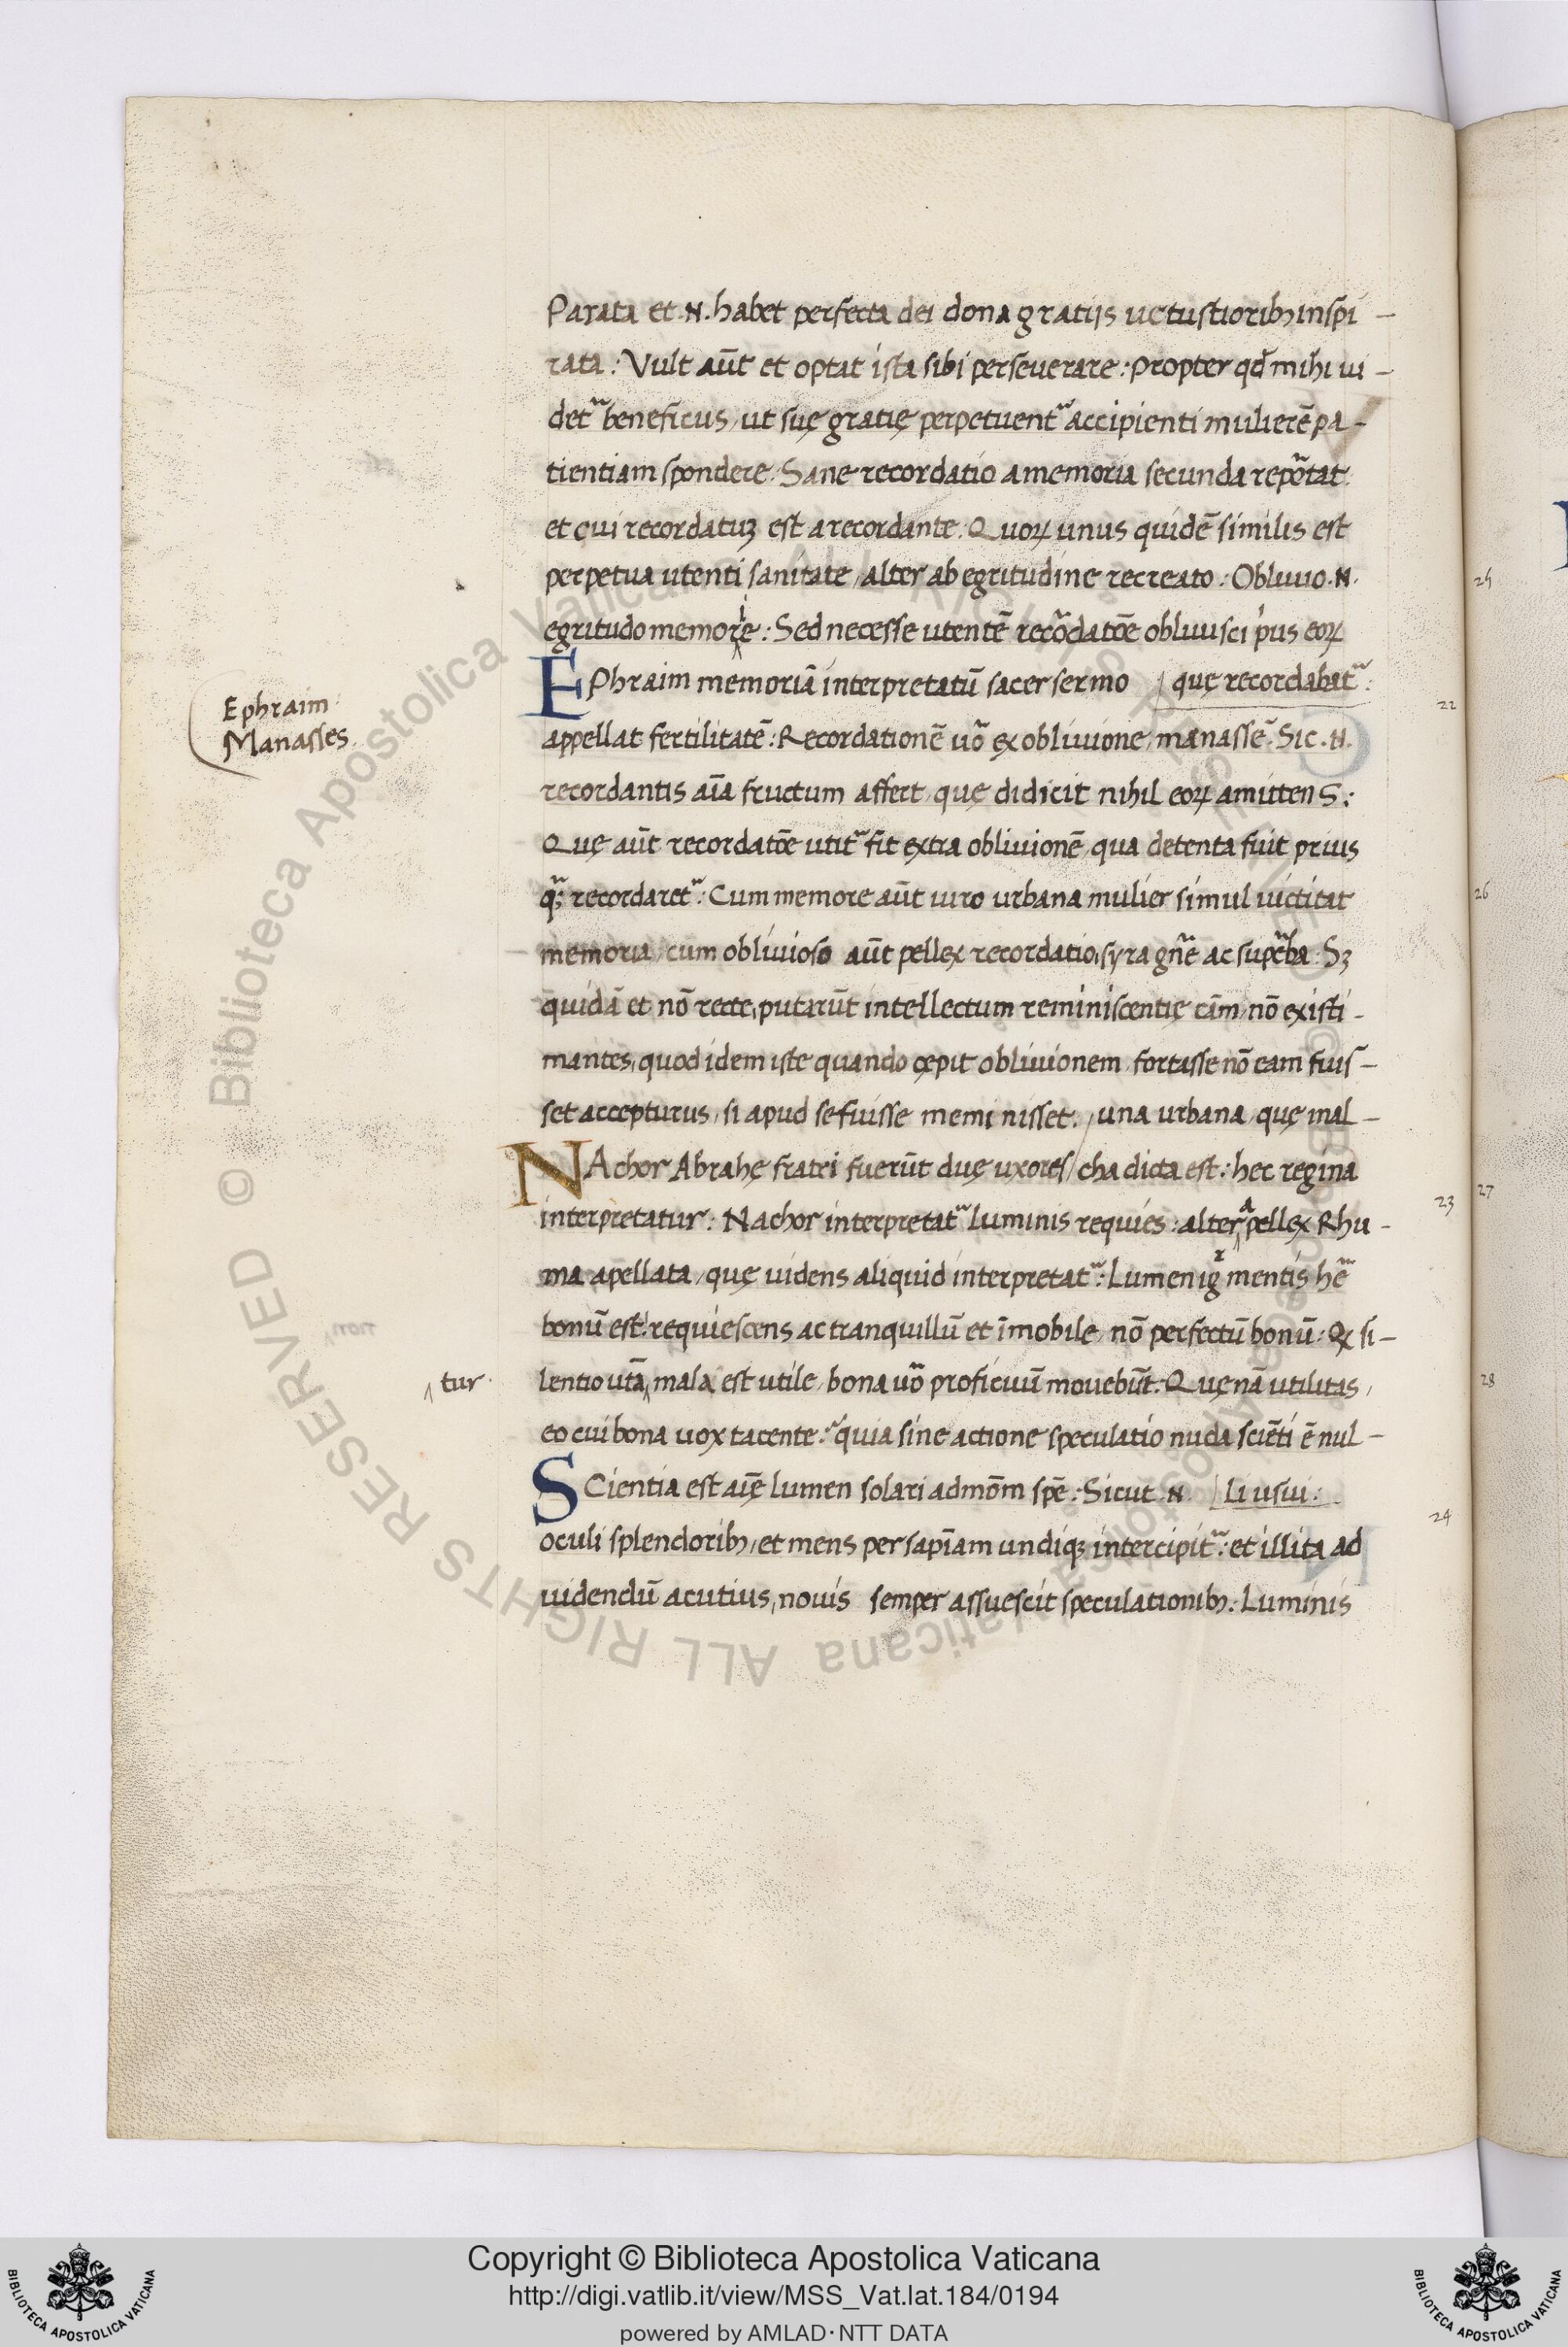 Parata et .N. habet perfecta dei dona gratijs uetustioribꝫ inspi-
rata : Vult aūt et optat ista sibi perseuerare : Propter qđ mihi ui-
det᷑ beneficus, ut suę gratię perpetuent᷑ accipienti mulierē pa-
tientiam spondere. Sane recordatio a memoria secunda repōtat :
et cui recordatuꝫ est a recordante. Quoꝝ unus quidē similis est
perpetua utenti sanitate, alter ab egritudine recreato : Obliuio .N.
egritudo memorie : Sed necesse utentē recōdatōe obliuisci p̍us eoꝝ
Ephraim memoriā interpretatū sacer sermo que recordabat᷑ :
Ephraim
Manasses
appellat fertilitatē : Recordationē uo᷑ ex obliuione, manassē. Sic .N.
recordantis aīa fructum affert, quę didicit nihil eoꝝ amittens :
Quę aūt recordatōe utit᷑ fit extra obliuionē, qua detenta fuit prius
q̃ꝫ recordaret᷑ : Cum memore aūt uiro urbana mulier simul uictitat
memoria, cum obliuioso aūt pellex recordatio, syra gn̄e ac supba : Sꝫ
quidā et nō recte, putarūt intellectum reminiscentię cām, nō existi-
mantes, quod idem iste quando cępit obliuionem, fortasse nō eam fuis-
set accepturus, si apud se fuisse meminisset. / una urbana, quę mal-
NAchor Abrahę fratri fuerūt duę uxores / cha dicta est : hec regina
interpretatur : Nachor interpretat᷑ luminis requies : altera pellex Rhu-
ma apellata, quę uidens aliquid interpretat᷑ : Lumen igr̄ mentis hē᷑
bonū est. requiescens ac tranquillū et īmobile, nō perfectū bonū : Qꝫ si-
lentio utā mala est utile, bona uo᷑ proficuū mouebūt. Quęnā utilitas,
tur.
eo cui bona uox tacente : quia sine actione speculatio nuda sciēti ē nul-
SCientia est aīę lumen solari admōm spē : Sicut .N. li usui :
oculi splendoribꝫ, et mens per sapīam undiqꝫ intercipit᷑ : et illita ad
uidendū acutius, nouis semper assuescit speculationibꝫ : Luminis
22
23
24
25
26
27
28
© Biblioteca Apostolica Vaticana ALL RIGHTS RESERVED © Biblioteca Apostolica Vaticana ALL RIGHTS RESERVED
Copyright © Biblioteca Apostolica Vaticana
http://digi.vatlib.it/view/MSS_Vat.lat.184/0194
powered by AMLAD·NTT DATA
BIBLIOTECA APOSTOLICA VATICANA
BIBLIOTECA APOSTOLICA VATICANA